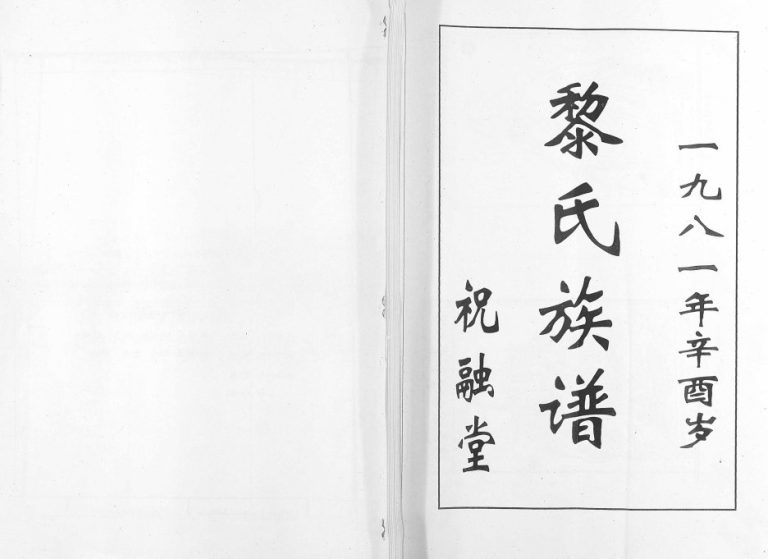 一九八一年辛酉岁
黎氏族谱
祝融堂